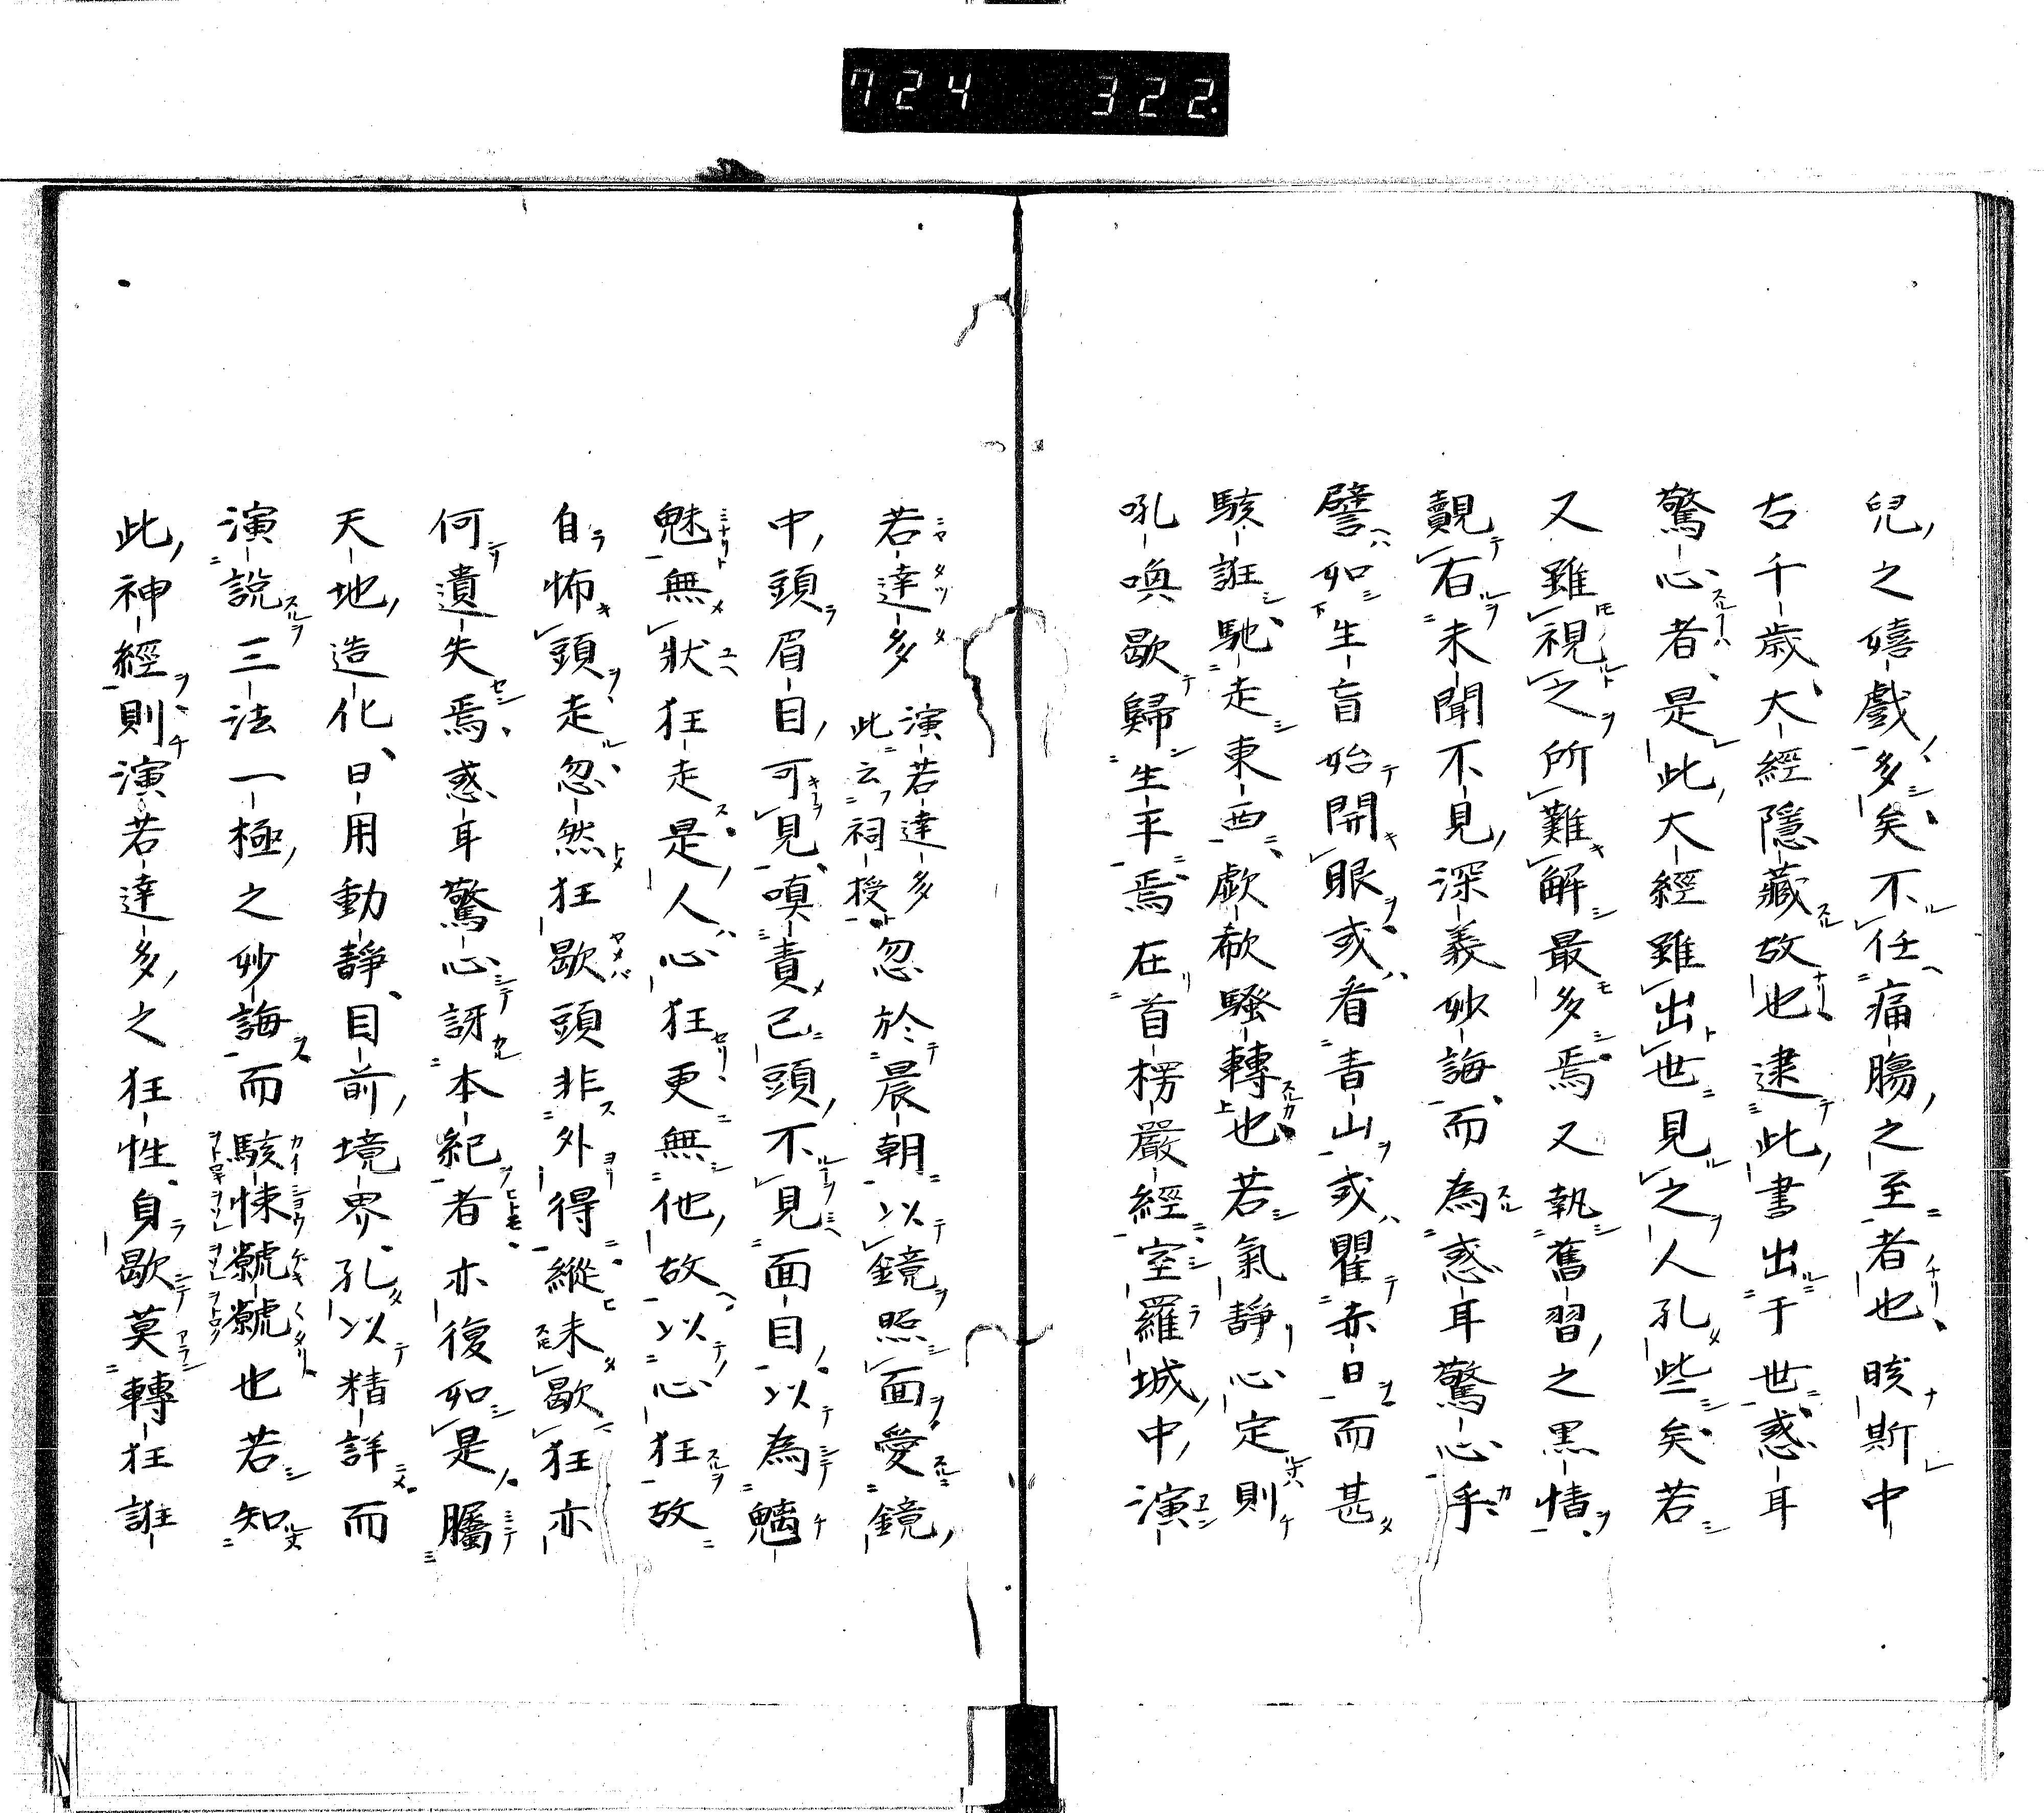 724 322
兒之嬉戲多矣不任痛腸之至者也咳斯中
古千歲大經隱藏故也逮此書出于世惑耳
驚心者是此大經雖出世見之人孔些矣若
又雖視之所難解最多焉又執舊習之黑情
覿右未聞不見深義妙誨而為惑耳驚心乎
譬如生盲始開眼或看青山或瞿赤日而甚
駭誑馳走東西歔欷騷轉也若氣靜心定則
吼喚歇歸生平焉在首楞嚴經室羅城中演
若達多 演若達多此云祠授 忽於晨朝以鏡照面愛鏡
中頭眉目可見嗔責己頭不見面目以為魑
魅無狀狂走是人心狂更無他故以心狂故
自怖頭走忽然狂歇頭非外得縱未歇狂亦
何遺失焉惑耳驚心訝本紀者亦復如是矚
天地造化日用動靜目前境界孔以精詳而
演說三法一極之妙誨而駭悚虩虩也若知
此神經則演若達多之狂性身歇莫轉狂誑